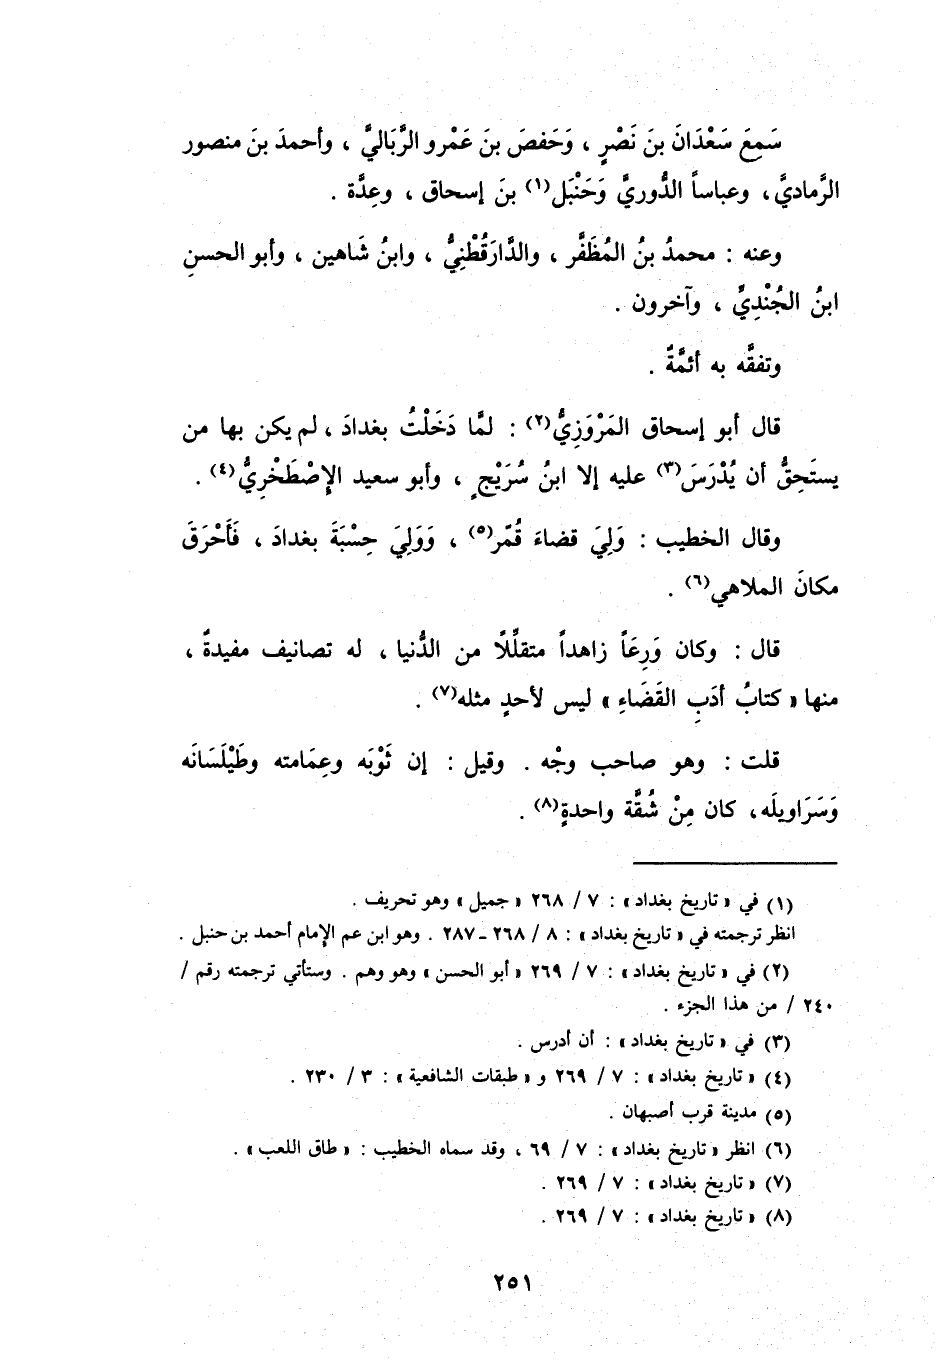 سَمِعَ سَعْدَانَ بنَ نَصْرٍ ، وَحَفصَ بنَ عَمْرو الرَّبَاليَّ ، وأحمدَ بنَ منصور
الرَّماديَّ، وعباساً الدُّوريَّ وَحَنْبَل(١) بنَ إسحاق ، وعِدَّة .
وعنه : محمدُ بنُ المُظَفَّر ، والدَّارَقُطْنِيُّ ، وابنُ شَاهين ، وأبو الحسنِ
ابنُ الجُنْدِيِّ ، وآخرون .
وتفقَّه به أئمَّةٌ .
قال أبو إسحاق المَرْوَزِيُّ(٢) : لمَّا دَخَلْتُ بغدادَ ، لم يكن بها من
يستَحِقُّ أن يُدْرَسَ(٣) عليه إلا ابنُ سُرَيْجٍ ، وأبو سعيد الإِصْطَخْرِيُّ(٤) .
وقال الخطيب : وَلِيَ قضاءَ قُمّر(٥) ، وَوَلِيَ حِسْبَةَ بغدادَ ، فَأَحْرَقَ
مكانَ الملاهي(٦) .
قال : وكان وَرِعَاً زاهداً متقلِّلًا من الدُّنيا ، له تصانيف مفيدةٌ ،
منها « كتابُ أدَبِ القَضَاءِ » ليس لأحدٍ مثله(٧) .
قلت : وهو صاحب وجْه . وقيل : إن ثَوْبَه وعِمَامته وطَيْلَسَانَه
وَسَرَاويلَه، كان مِنْ شُقَّة واحدةٍ(٨) .
(١) في « تاريخ بغداد » : ٧ / ٢٦٨ « جميل » وهو تحريف .
انظر ترجمته في « تاريخ بغداد » : ٨ / ٢٦٨ ـ ٢٨٧ . وهو ابن عم الإمام أحمد بن حنبل .
(٢) في « تاريخ بغداد » : ٧ / ٢٦٩ « أبو الحسن » وهو وهم . وستأتي ترجمته رقم /
٢٤٠ / من هذا الجزء .
(٣) في « تاريخ بغداد » : أن أدرس .
(٤) « تاريخ بغداد » : ٧ / ٢٦٩ و « طبقات الشافعية » : ٣ / ٢٣٠ .
(٥) مدينة قرب أصبهان .
(٦) انظر « تاريخ بغداد » : ٧ / ٦٩ ، وقد سماه الخطيب : « طاق اللعب » .
(٧) « تاريخ بغداد » : ٧ / ٢٦٩ .
(٨) « تاريخ بغداد » : ٧ / ٢٦٩ .
٢٥١